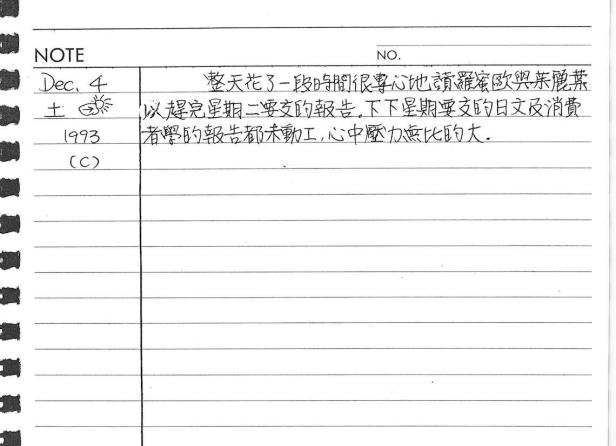 NOTE
NO.
Dec. 4
整天花了一段時間很專心地讀羅蜜歐與茱麗葉
土
以趕完星期二要交的報告。下下星期要交的日文及消費
1993
者學的報告都未動工，心中壓力無比的大。
(C)